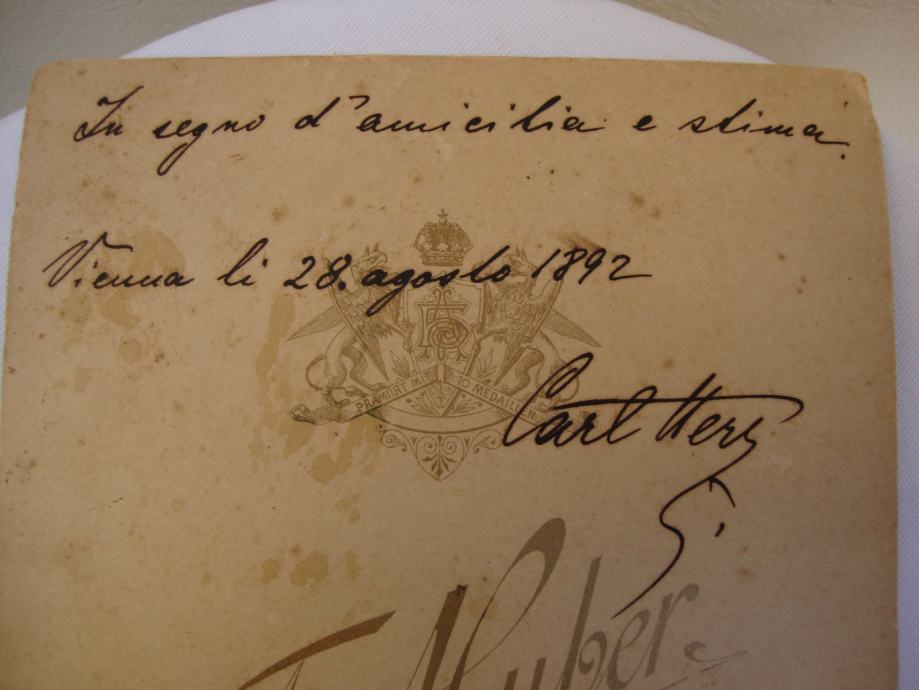 In segno d'amicilia e stima.
Vienna li 28. agosto 1892
PRÄMIIRT MIT 10 MEDAILLEN
Carl Herz
Huber